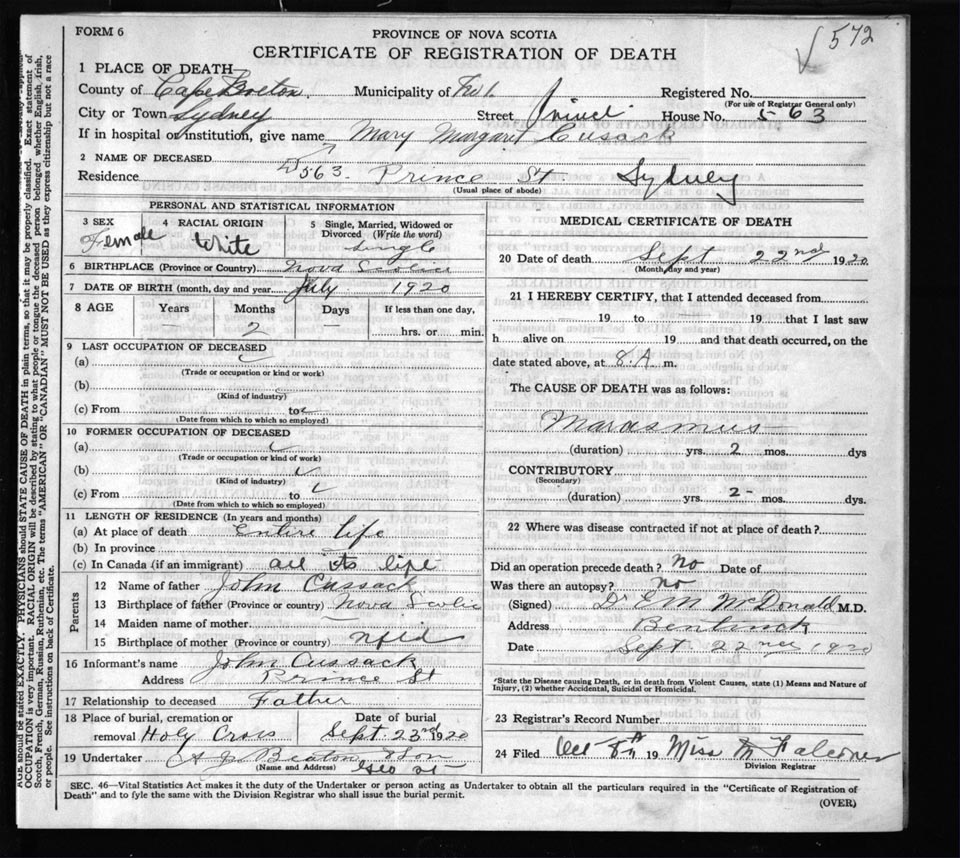 FORM 6
PROVINCE OF NOVA SCOTIA
572
CERTIFICATE OF REGISTRATION OF DEATH
1 PLACE OF DEATH—
County of Cape Breton Municipality of Registered No.
(For use of Registrar General only)
City or Town Sydney Street House No. 563
If in hospital or institution, give name Mary Margaret Cusack
2 NAME OF DECEASED
Residence 563 Prince St. Sydney
(Usual place of abode)
PERSONAL AND STATISTICAL INFORMATION
3 SEX 4 RACIAL ORIGIN 5 Single, Married, Widowed or Divorced (Write the word)
Female White Single
6 BIRTHPLACE (Province or Country) Nova Scotia
7 DATE OF BIRTH (month, day and year July 1920
8 AGE Years Months Days If less than one day,
2 — hrs. or min.
9 LAST OCCUPATION OF DECEASED
(a)
(Trade or occupation or kind or work)
(b)
(Kind of industry)
(c) From to
(Date from which to which so employed)
10 FORMER OCCUPATION OF DECEASED
(a)
(Trade or occupation or kind of work)
(b)
(Kind of industry)
(c) From to
(Date from which to which so employed)
11 LENGTH OF RESIDENCE (In years and months)
(a) At place of death Entire life
(b) In province
(c) In Canada (if an immigrant) all its life
Parents
12 Name of father John Cussack
13 Birthplace of father (Province or country) Nova Scotia
14 Maiden name of mother
15 Birthplace of mother (Province or country) Nfld
16 Informant's name John Cussack
Address Prince St
17 Relationship to deceased Father
18 Place of burial, cremation or removal Holy Cross
Date of burial Sept. 23rd 1920
19 Undertaker A. J. Beaton & Son
(Name and Address) Geo St
MEDICAL CERTIFICATE OF DEATH
20 Date of death Sept 22nd 1920
(Month, day and year)
21 I HEREBY CERTIFY, that I attended deceased from
19 to 19 that I last saw
h alive on 19 and that death occurred, on the
date stated above, at 8 A. m.
The CAUSE OF DEATH was as follows:
Marasmus
(duration) yrs. 2 mos. dys
CONTRIBUTORY
(Secondary)
(duration) yrs. 2 mos. dys.
22 Where was disease contracted if not at place of death?
Did an operation precede death? No Date of
Was there an autopsy? No
(Signed) Dr E M McDonald M.D.
Address Bentinck
Date Sept. 22nd 1920
*State the Disease causing Death, or in death from Violent Causes, state (1) Means and Nature of
Injury, (2) whether Accidental, Suicidal or Homicidal.
23 Registrar's Record Number
24 Filed Oct 8th 19 Miss M Falconer
Division Registrar
SEC. 46—Vital Statistics Act makes it the duty of the Undertaker or person acting as Undertaker to obtain all the particulars required in the "Certificate of Registration of
Death" and to fyle the same with the Division Registrar who shall issue the burial permit.
(OVER)
AGE should be stated EXACTLY. PHYSICIANS should STATE CAUSE OF DEATH in plain terms, so that it may be properly classified. Exact statement of
OCCUPATION is very important. RACIAL ORIGIN will be described by stating to what people or tongue the deceased person belonged whether English, Irish,
Scotch, French, German, Russian, Ruthenian, etc. The terms "AMERICAN" OR "CANADIAN" MUST NOT BE USED as they express citizenship but not a race
or people. See instructions on back of Certificate.